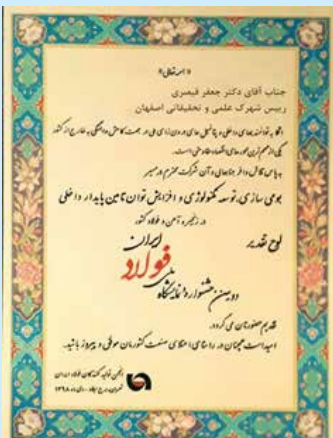 «بسمه تعالی»
جناب آقای دکتر جعفر قیصری
رییس شهرک علمی و تحقیقاتی اصفهان
اتکا به توانمندی‌های داخلی و پتانسیل‌های درون‌زای ملی در جهت کاهش وابستگی به خارج از کشور
یکی از مهم‌ترین محورهای اقتصاد مقاومتی است.
به پاس تلاش وافر جنابعالی و آن شرکت محترم در مسیر
بومی سازی، توسعه تکنولوژی و افزایش توان تامین پایدار داخلی
در زنجیره آهن و فولاد کشور
لوح تقدیر
دومین جشنواره و نمایشگاه ملی فولاد ایران
تقدیم حضورتان می گردد.
امید است همچنان در راستای اعتلای صنعت کشورمان موفق و پیروز باشید.
انجمن تولید کنندگان فولاد ایران
تهران، برج میلاد - دی ماه ۱۳۹۸